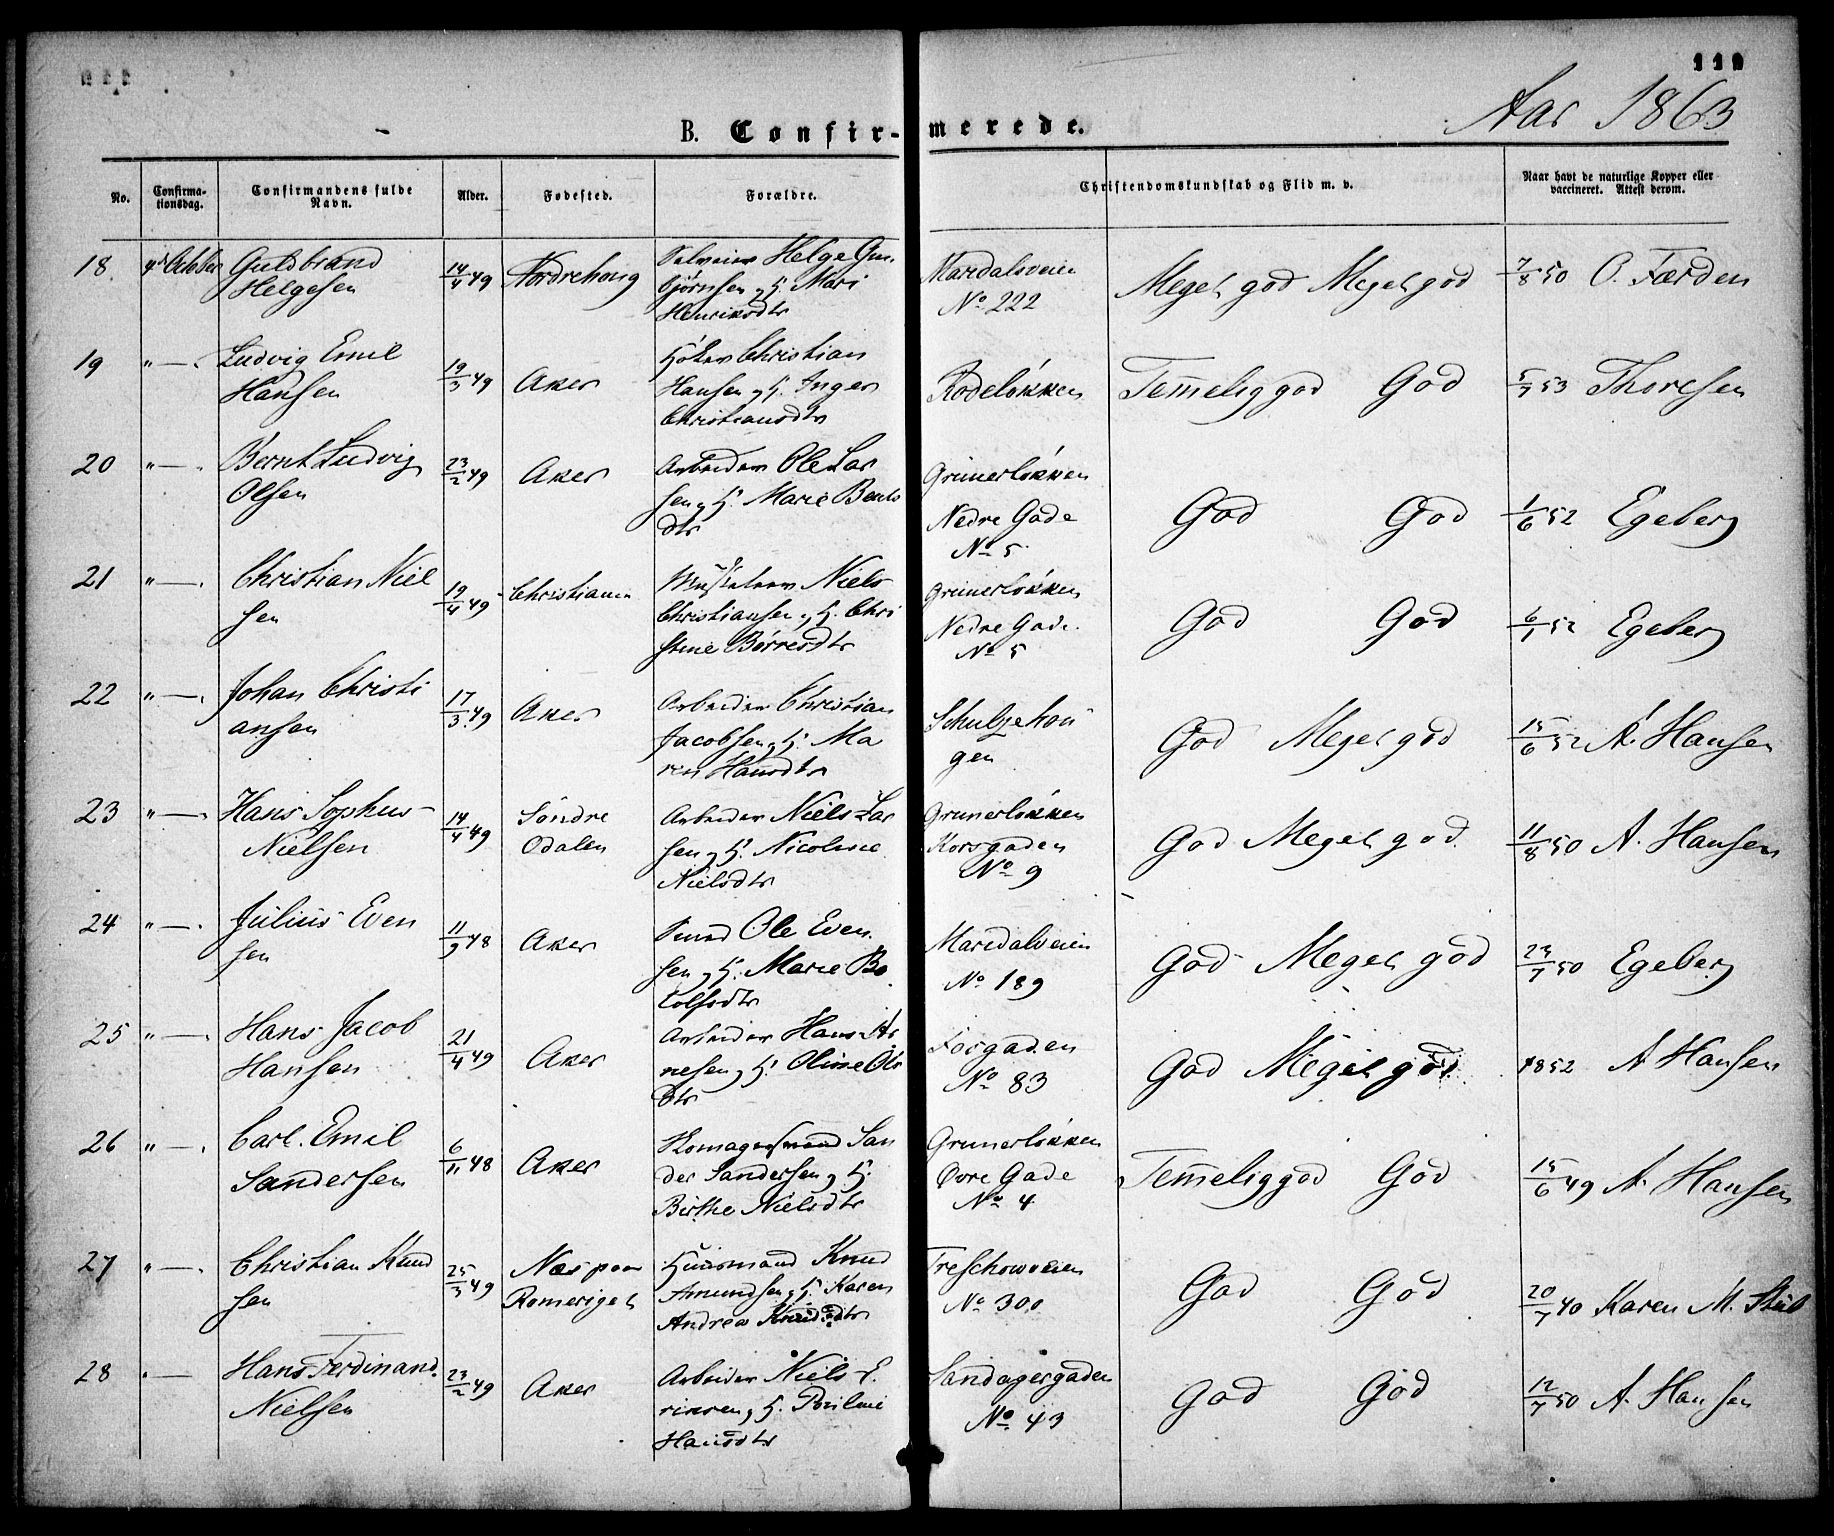 Aar 1863
B. Confir- merede.
No.
Confirma-
tionsdag.
Confirmandens fulde
Navn.
Alder.
Fødested.
Forældre.
Christendomskundskab og Flid m. v.
Naar havt de naturlige Kopper eller
vaccineret. Attest derom.
18. October Guldbrand
Helgesen
14/4 49 Nordrehoug
Helge Gun
bjørnsen og H. Mari
Henriksdtr
Maridalsveien
No 222
Meget god Meget god 7/8 50 O. Færden
19 "—. Ludvig Emil
Hansen
19/3 49 Aker
Christian
Hansen og H. Inger
Christiansdtr
Rodeløkken
Temelig god God 5/7 53 Thoresen
20 "—. Bernt Ludvig
Olsen
23/2 49 Aker
Arbeider Ole Lar
sen og H. Marie Bents
dtr
Grünerløkken
Nedre Gade
No 5.
God God 1/6 52 Egeberg
21 "—. Christian Niel
sen
19/4 49 Christiania
Niels
Christiansen og H. Chri
stine Børresdtr
Grünerløkken
Nedre Gade.
No 5
God God 6/1 52 Egeberg
22 "—. Johan Christi
ansen
17/3 49 Aker
Arbeider Christian
Jacobsen og H. Ma
ren Hansdtr
Schultzehou
gen
God Meget god 15/6 52 A. Hansen
23 "—. Hans Sophus
Nielsen
14/4 49 Søndre
Odalen
Arbeider Niels Lar
sen og H. Nicoline
Nielsdtr
Grunerløkken
Korsgaden
No 9
God Meget god 11/8 50 A. Hansen
24 "—. Julius Even
sen
11/9 48 Aker
Smed Ole Even
sen og H. Marie Bo
tolfsdtr
Maridalveien
No 189
God Meget god 23/7 50 Egeberg
25 "—. Hans Jacob
Hansen
21/4 49 Aker
Arbeider Hans Ar
nesen og H. Oline Ols
dtr
Fosgaden
No 83
God Meget god 1852 A Hansen
26 "—. Carl Emil
Sandersen
6/11 48 Aker
Skomagersvend San
der Sandersen og H.
Birthe Nielsdtr
Grunerløkken
Øvre Gade
No 4
Temelig god God 15/6 49 A. Hansen
27 "—. Christian Knud
sen
25/3 49 Næs paa
Romeriget
Huusmand Knud
Amundsen og H. Karen
Andrea Knudsdtr
Treschowveien
No 300
God God 20/7 40 Karen M. Stub
28 "— Hans Ferdinand
Nielsen
23/2 49 Aker
Arbeider Niels E
riksen og H. Pauline
Hansdtr
Sandagergaden
No 43
God God 12/7 50 A. Hansen